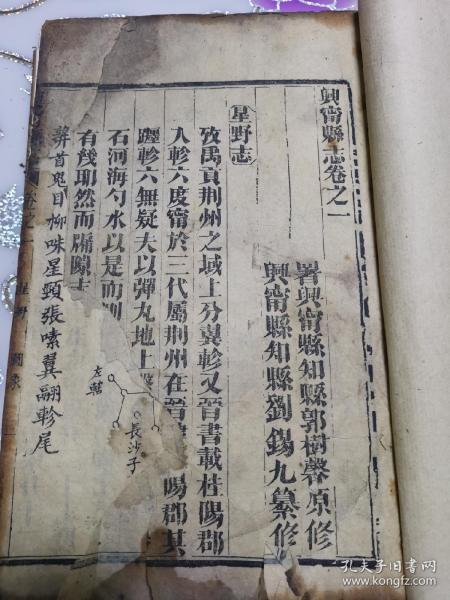 興甯縣志卷之一
署興甯縣知縣郭樹馨原修
興甯縣知縣劉錫九纂修
星野志
攷禹貢荆州之域上分翼軫又晉書載桂陽郡
入軫六度甯於三代屬荆州在晉
陽郡其
躔軫六無疑夫以彈丸地上
石河海勺水以是而
有餞耶然而
志
左轄
長沙子
井首鬼目柳咮星頸張嗉翼翮軫尾
卷之一
星野
孔夫子旧书网
www.kongfz.com